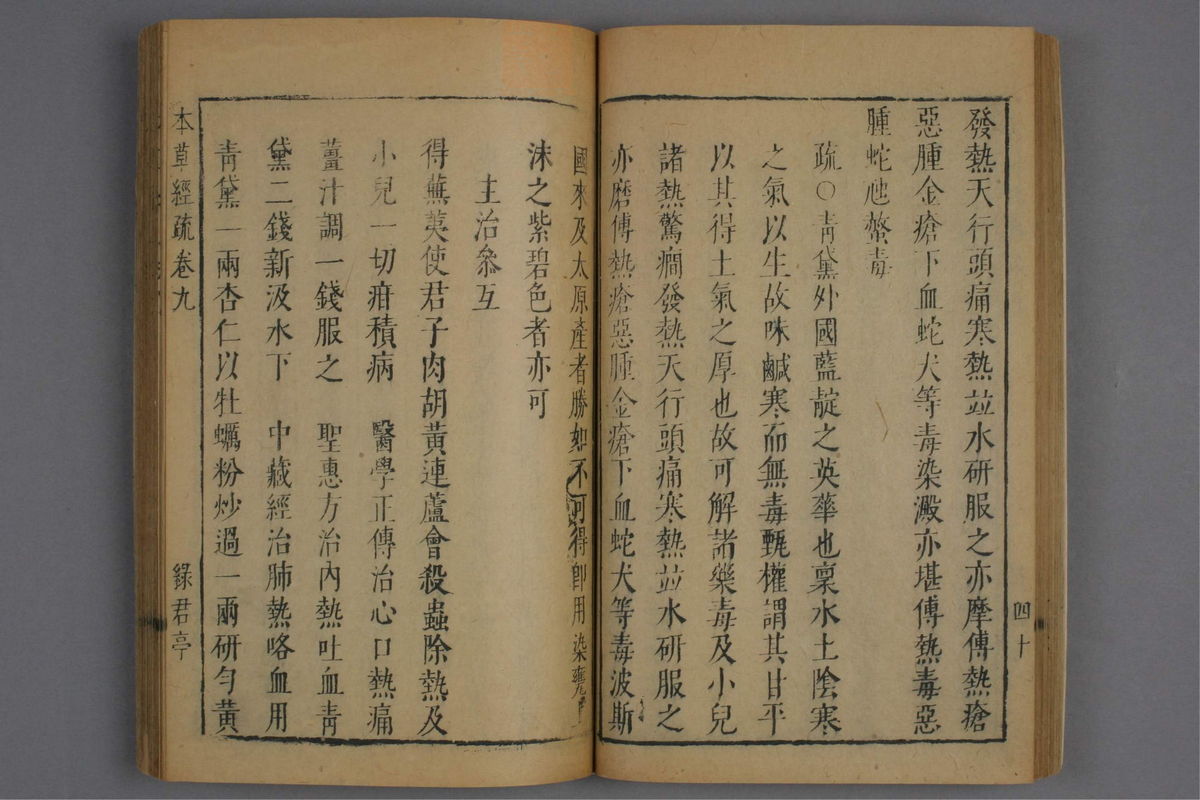 發熱天行頭痛寒熱並水研服之亦摩傅熱瘡
惡腫金瘡下血蛇犬等毒染澱亦堪傅熱毒惡
腫蛇虺螫毒
疏○靑黛外國藍靛之英華也稟水土陰寒
之氣以生故味鹹寒而無毒甄權謂其甘平
以其得土氣之厚也故可解諸藥毒及小兒
諸熱驚癎發熱天行頭痛寒熱並水研服之
亦磨傅熱瘡惡腫金瘡下血蛇犬等毒波斯
四十
國來及太原產者勝如不可得卽用染甕上
沫之紫碧色者亦可
主治叅互
得蕪荑使君子肉胡黃連蘆會殺蟲除熱及
小兒一切疳積病　醫學正傳治心口熱痛
薑汁調一錢服之　聖惠方治內熱吐血靑
黛二錢新汲水下　中藏經治肺熱咯血用
靑黛一兩杏仁以牡蠣粉炒過一兩研勻黃
本草經疏卷九
綠君亭